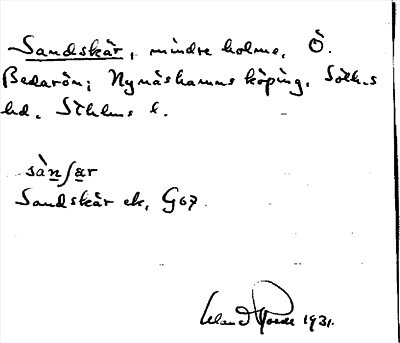 Sandskär, mindre holme, Ö.
Bedarön; Nynäshamns köping, Söth.s
hd. Sthlms l.
sànʃær
Sandskär ek. G67
1931.